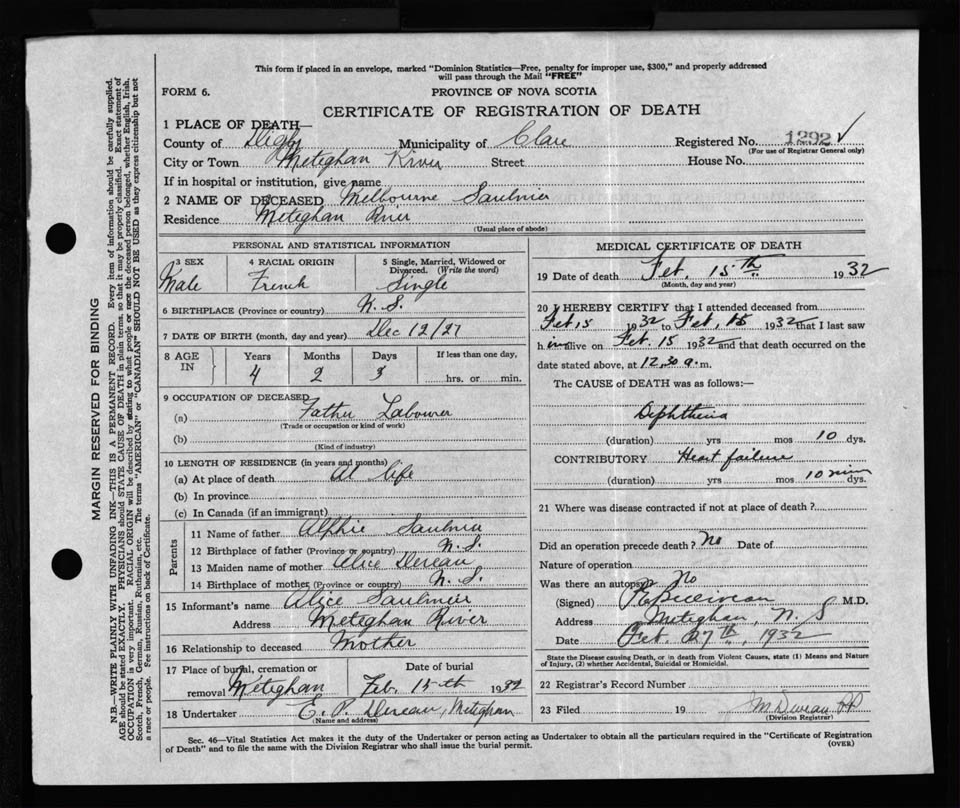 This form if placed in an envelope, marked "Dominion Statistics—Free, penalty for improper use, $300," and properly addressed
will pass through the Mail "FREE"
FORM 6.
PROVINCE OF NOVA SCOTIA
CERTIFICATE OF REGISTRATION OF DEATH
1 PLACE OF DEATH—
County of Digby Municipality of Clare Registered No. 1392
(For use of Registrar General only)
City or Town Meteghan River Street House No.
If in hospital or institution, give name
2 NAME OF DECEASED Melbourne Saulnier
Residence Meteghan River
(Usual place of abode)
PERSONAL AND STATISTICAL INFORMATION
3 SEX 4 RACIAL ORIGIN 5 Single, Married, Widowed or
Divorced. (Write the word)
Male French Single
6 BIRTHPLACE (Province or country) N.S.
7 DATE OF BIRTH (month, day and year) Dec 12/27
8 AGE IN Years Months Days If less than one day,
4 2 3 hrs. or min.
9 OCCUPATION OF DECEASED
(a) Father Labourer
(Trade or occupation or kind of work)
(b)
(Kind of industry)
10 LENGTH OF RESIDENCE (in years and months)
(a) At place of death Al life
(b) In province
(c) In Canada (if an immigrant)
Parents
11 Name of father Alphie Saulnier
12 Birthplace of father (Province or country) N.S.
13 Maiden name of mother Alice Deveau
14 Birthplace of mother (Province or country) N.S.
15 Informant's name Alice Saulnier
Address Meteghan River
16 Relationship to deceased Mother
17 Place of burial, cremation or Date of burial
removal Meteghan Feb. 15th 1932
18 Undertaker E. P. Deveau, Meteghan
(Name and address)
MEDICAL CERTIFICATE OF DEATH
19 Date of death Fet. 15th 1932
(Month, day and year)
20 I HEREBY CERTIFY that I attended deceased from
Fet 15 1932 to Fet. 15 1932 that I last saw
h im alive on Fet. 15 1932 and that death occurred on the
date stated above, at 12.30 a.m.
The CAUSE of DEATH was as follows:—
Diphtheria
(duration) yrs mos 10 dys.
CONTRIBUTORY Heart failure
(duration) yrs mos 10 min dys.
21 Where was disease contracted if not at place of death?
Did an operation precede death? No Date of
Nature of operation
Was there an autopsy No
(Signed) M.D.
Address Meteghan, N S
Date Fet. 27th, 1932
State the Disease causing Death, or in death from Violent Causes, state (1) Means and Nature
of Injury, (2) whether Accidental, Suicidal or Homicidal.
22 Registrar's Record Number
23 Filed 19 Deveau
(Division Registrar)
Sec. 46—Vital Statistics Act makes it the duty of the Undertaker or person acting as Undertaker to obtain all the particulars required in the "Certificate of Registration
of Death" and to file the same with the Division Registrar who shall issue the burial permit.
(OVER)
MARGIN RESERVED FOR BINDING
N.B.—WRITE PLAINLY WITH UNFADING INK—THIS IS A PERMANENT RECORD. Every item of information should be carefully supplied.
AGE should be stated EXACTLY. PHYSICIANS should STATE CAUSE OF DEATH in plain terms, so that it may be properly classified. Exact statement of
OCCUPATION is very important. RACIAL ORIGIN will be described by stating to what people or race the deceased person belonged, whether English, Irish,
Scotch, French, German, Russian, Ruthenian, etc. The terms "AMERICAN" or "CANADIAN" SHOULD NOT BE USED as they express citizenship but not
a race or people. See instructions on back of Certificate.